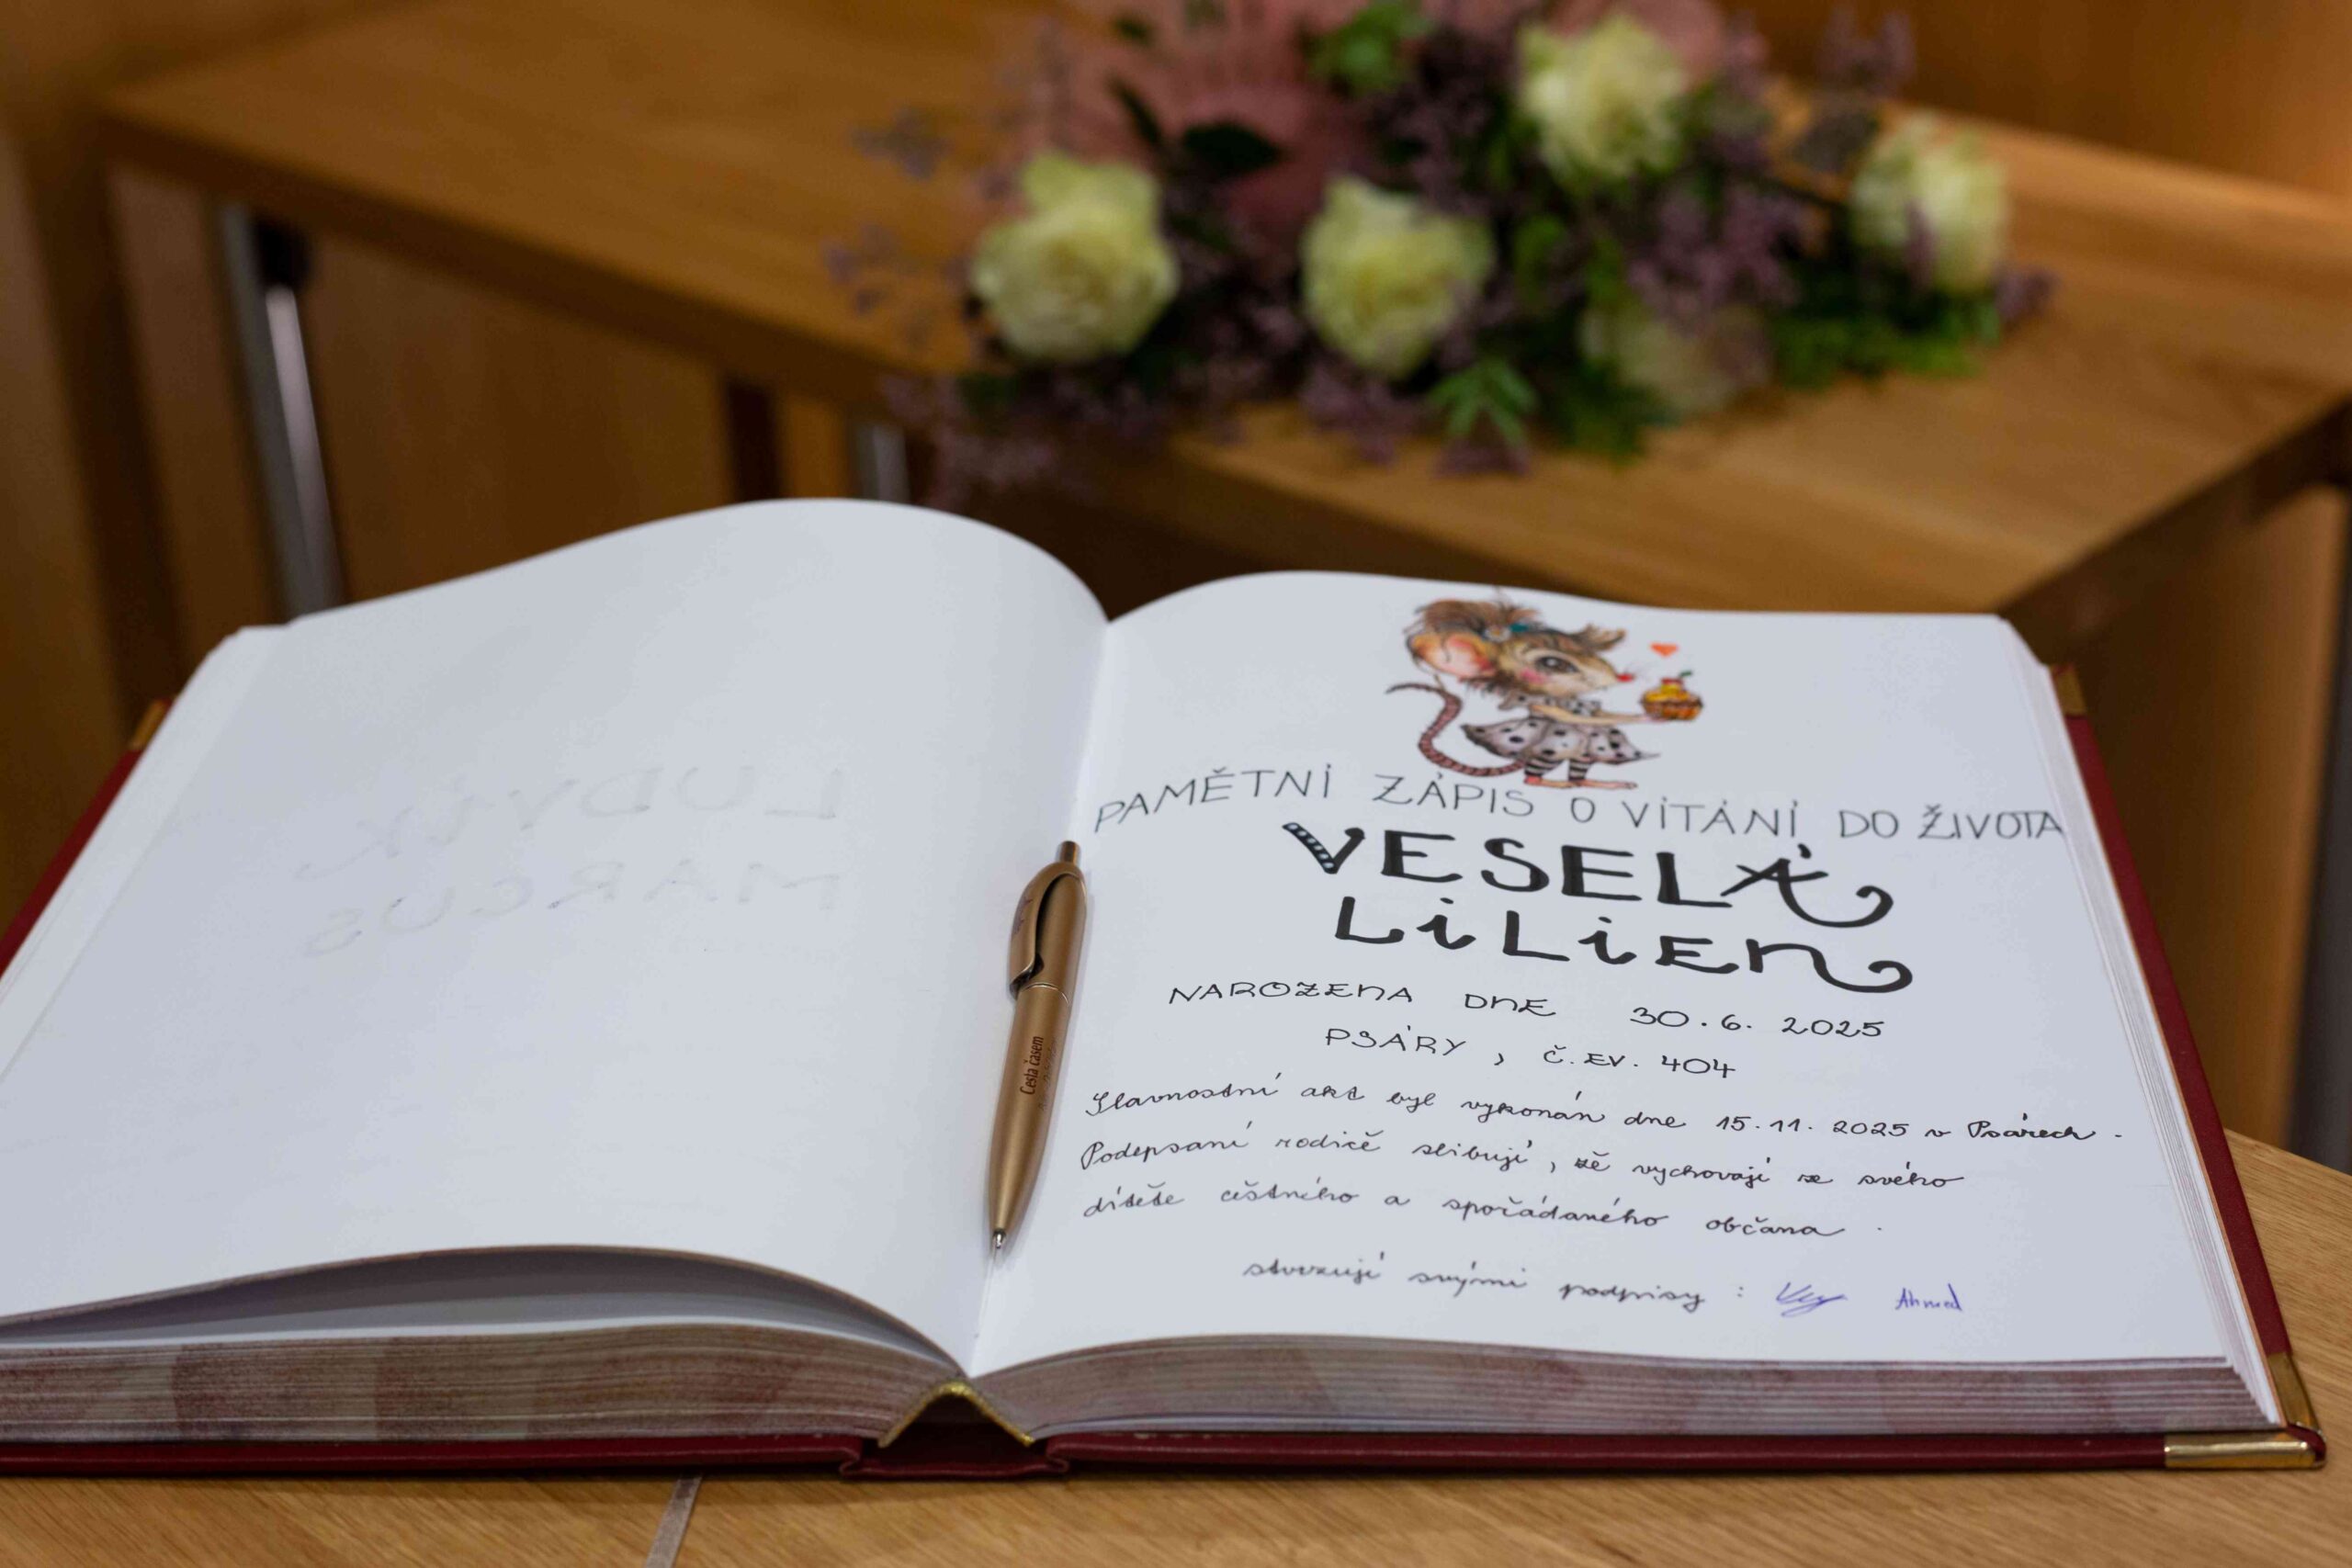 LUDVÍK
MARCUS
Cesta časem
PAMĚTNÍ ZÁPIS O VÍTÁNÍ DO ŽIVOTA
VESELÁ
LiLiEn
NAROZENA DNE 30.6. 2025
PSÁRY, Č.EV. 404
Slavnostní akt byl vykonán dne 15.11. 2025 v Psárech.
Podepsaní rodiče slibují, že vychovají ze svého
dítěte čestného a spořádaného občana.
stvrzují svými podpisy: Ahmed